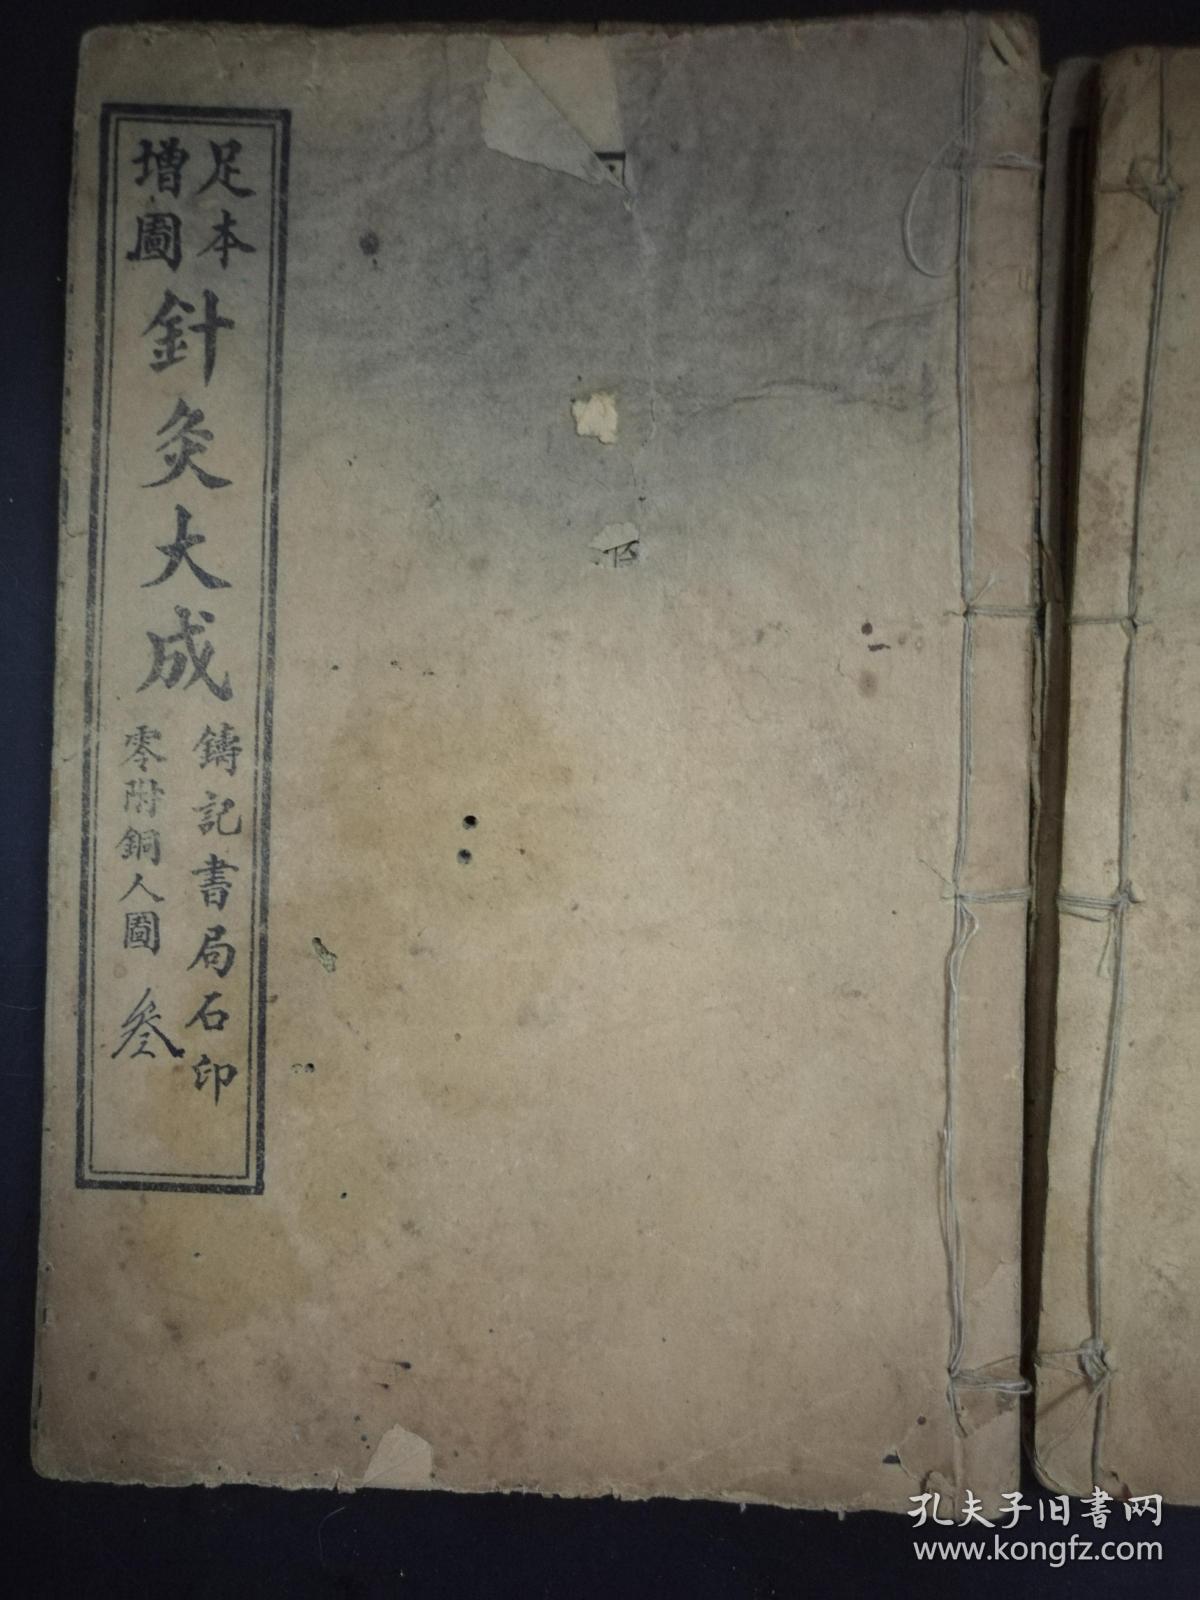 足本
增圖
針灸大成
鑄記書局石印
零附銅人圖
叁
孔夫子旧书网
www.kongfz.com